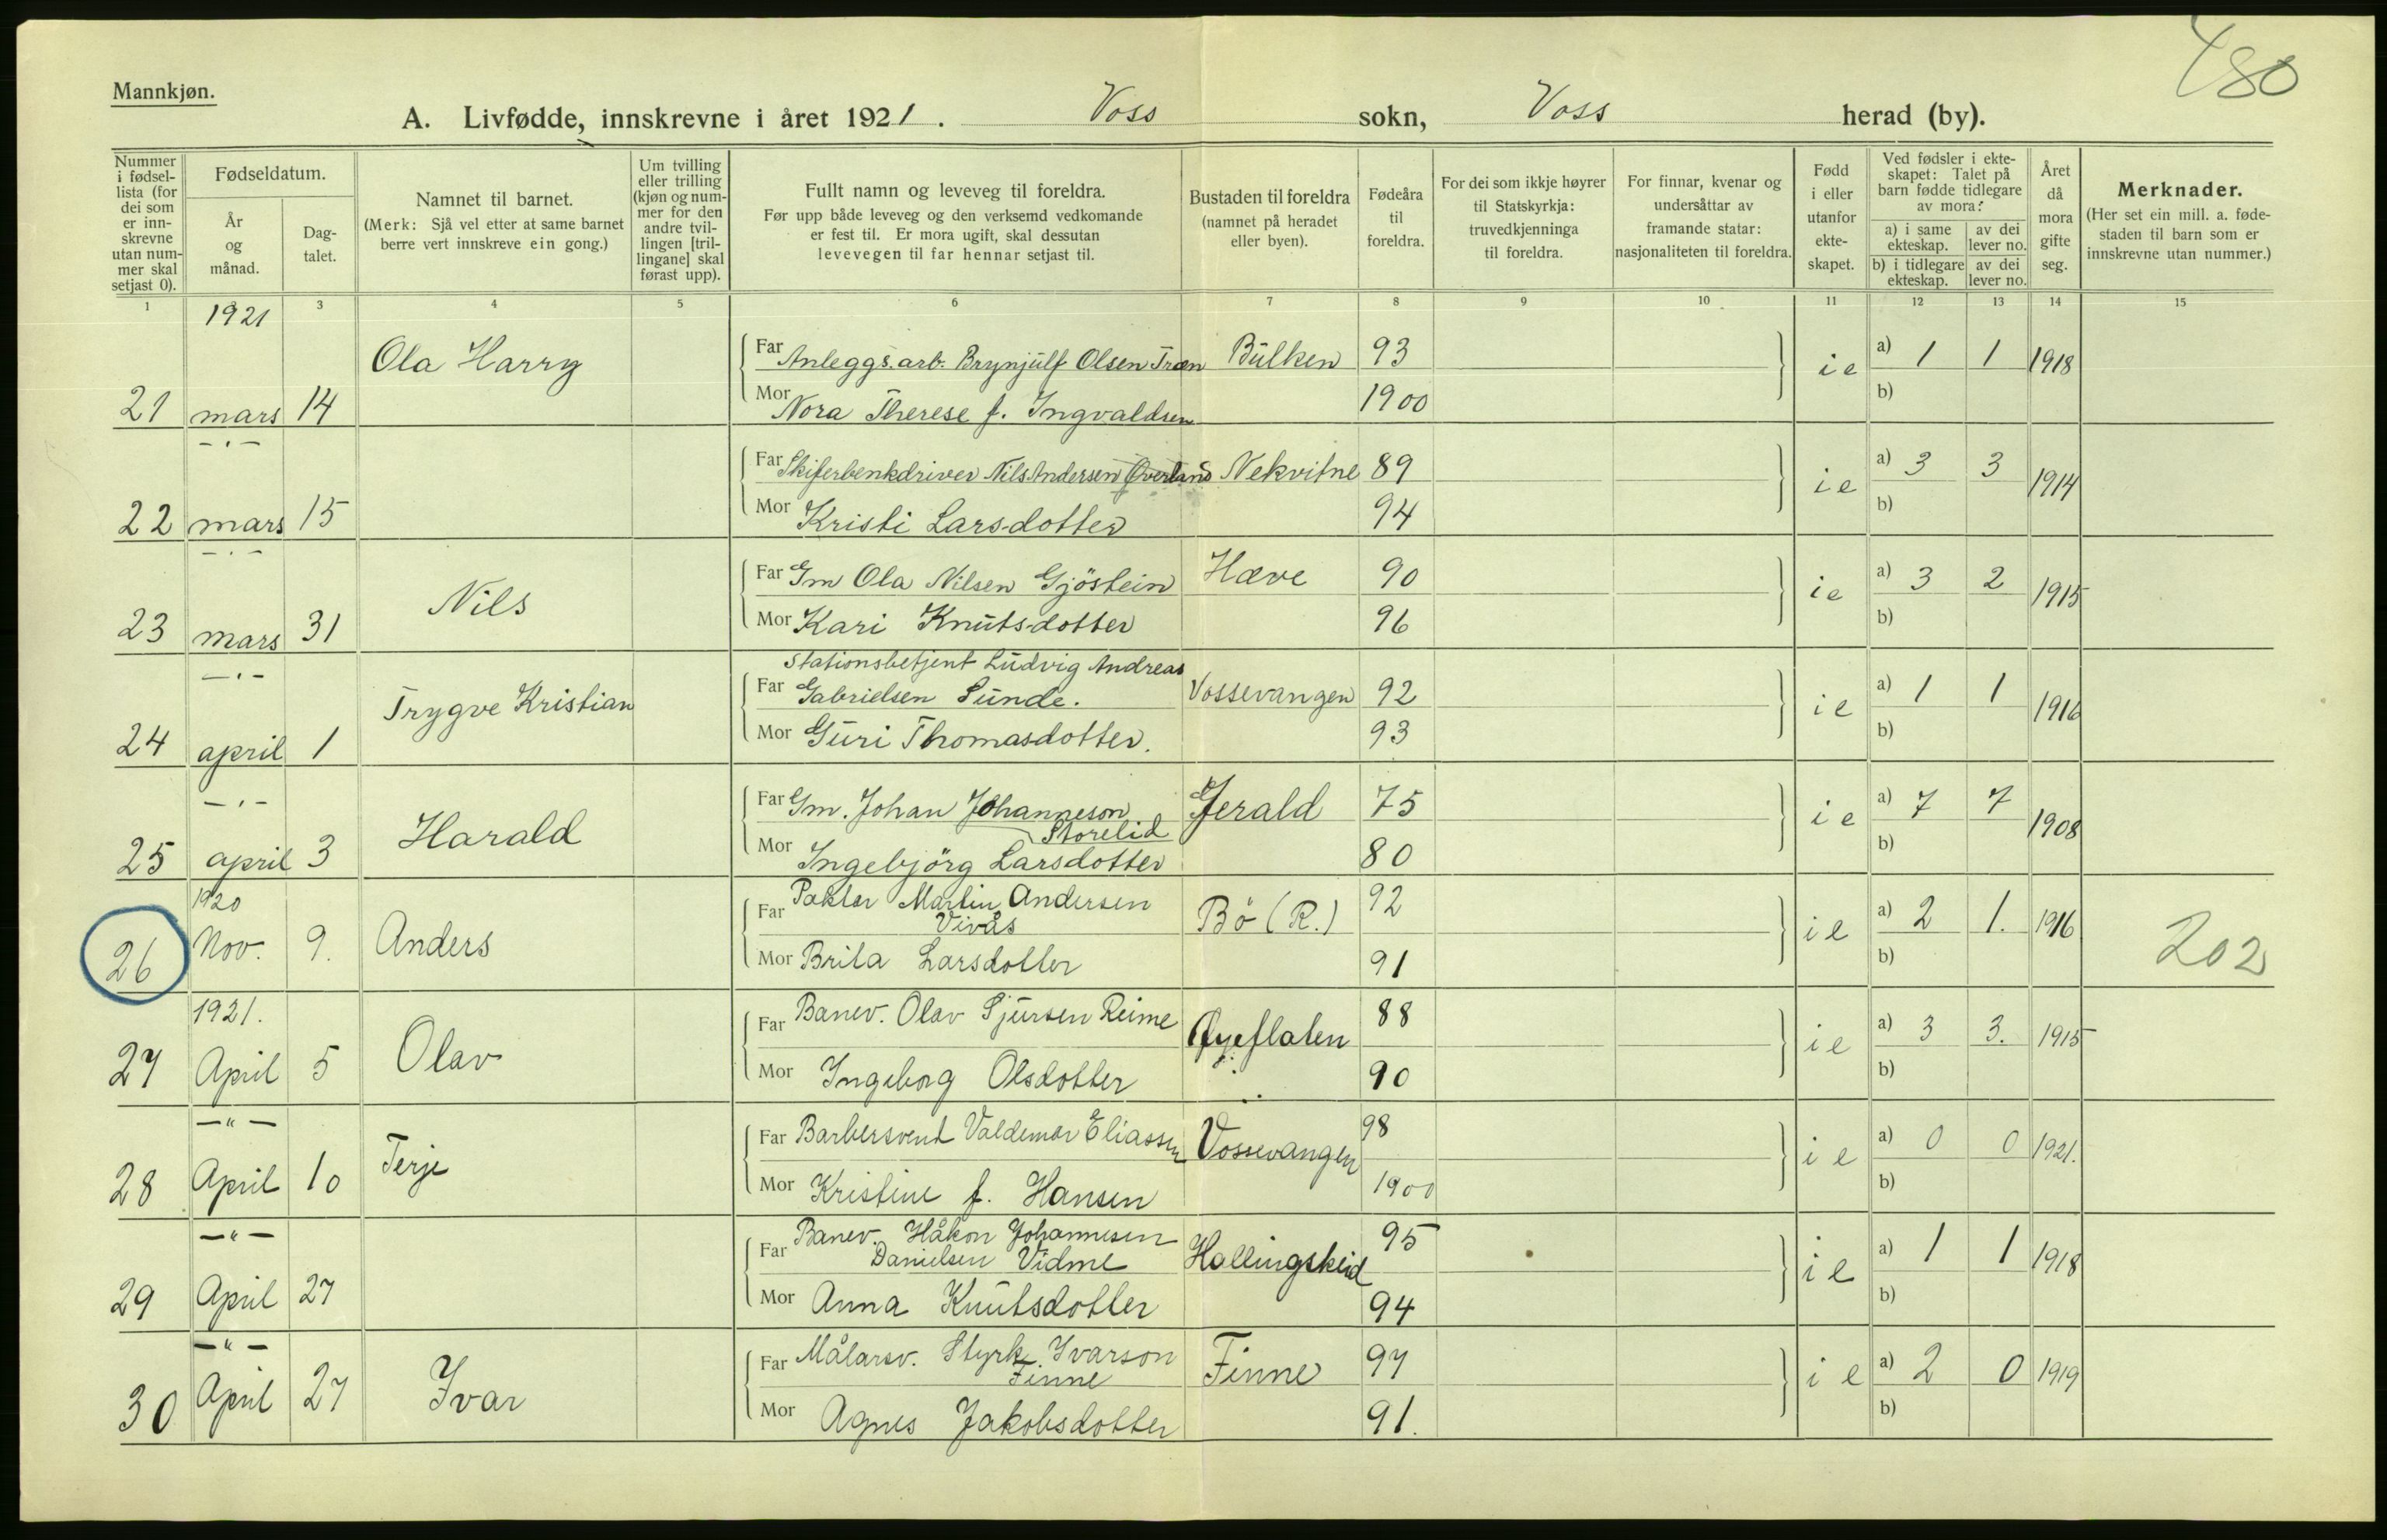 480
Mannkjøn.
A. Livfødde, innskrevne i året 1921. Voss sokn, Voss herad (by).
Nummer i fødsel-lista (for dei som er inn-skrevne utan num-mer skal setjast 0).
Fødseldatum.
År og månad.
Dag-talet.
Namnet til barnet.
(Merk: Sjå vel etter at same barnet berre vert innskreve ein gong.)
Um tvilling eller trilling (kjøn og num-mer for den andre tvil-lingen [tril-lingane] skal førast upp).
Fullt namn og leveveg til foreldra.
Før upp både leveveg og den verksemd vedkomande er fest til. Er mora ugift, skal dessutan levevegen til far hennar setjast til.
Bustaden til foreldra (namnet på heradet eller byen).
Fødeåra til foreldra.
For dei som ikkje høyrer til Statskyrkja: truvedkjenninga til foreldra.
For finnar, kvenar og undersåttar av framande statar: nasjonaliteten til foreldra.
Fødd i eller utanfor ekte-skapet.
Ved fødsler i ekte-skapet: Talet på barn fødde tidlegare av mora:
a) i same ekteskap. av dei lever no.
b) i tidlegare ekteskap. av dei lever no.
Året då mora gifte seg.
Merknader.
(Her set ein mill. a. føde-staden til barn som er innskrevne utan nummer.)
1 3 4 5 6 7 8 9 10 11 12 13 14 15
1921
21 mars 14 Ola Harry Far Anleggs.arb. Brynjulf Olsen Træn Bulken 93 i e a) 1 1 1918
Mor Nora Therese f. Ingvaldsen 1900 b)
— . —
22 mars 15 Far Skiferbenkdriver Nils Andersen Øverland Nekvitne 89 i e a) 3 3 1914
Mor Kristi Larsdotter 94 b)
— . —
23 mars 31 Nils Far Gm Ola Nilsen Gjöstein Hæve 90 i e a) 3 2 1915
Mor Kari Knutsdotter 96 b)
— . —
24 april 1 Trygve Kristian Far Stationsbetjent Ludvig Andreas
Gabrielsen Sunde. Vossevangen 92 i e a) 1 1 1916
Mor Guri Thomasdotter. 93 b)
— . —
25 april 3 Harald Far Gm. Johan Johanneson
Storelid Gjerald 75 i e a) 7 7 1908
Mor Ingebjörg Larsdotter 80 b)
1920
26 Nov. 9. Anders Far Paktar Martin Andersen
Vivås Bö (R.) 92 i e a) 2 1. 1916 202
Mor Brita Larsdotter 91 b)
1921.
27 April 5 Olav Far Banev. Olav Sjursen Reime Øyeflaten 88 i e a) 3 3. 1915
Mor Ingeborg Olsdotter 90 b)
— " —
28 April 10 Terje Far Barbersvend Valdemar Eliassen Vossevangen 98 i e a) 0 0 1921.
Mor Kristine f. Hansen 1900 b)
— " —
29 April 27 Far Banev. Håkon Johannesen
Danielsen Vidme Hallingskeid 95 i e a) 1 1 1918
Mor Anna Knutsdotter 94 b)
— " —
30 April 27 Ivar Far Målarsv. Styrk Ivarson
Finne Finne 97 i e a) 2 0 1919
Mor Agnes Jakobsdotter 91. b)